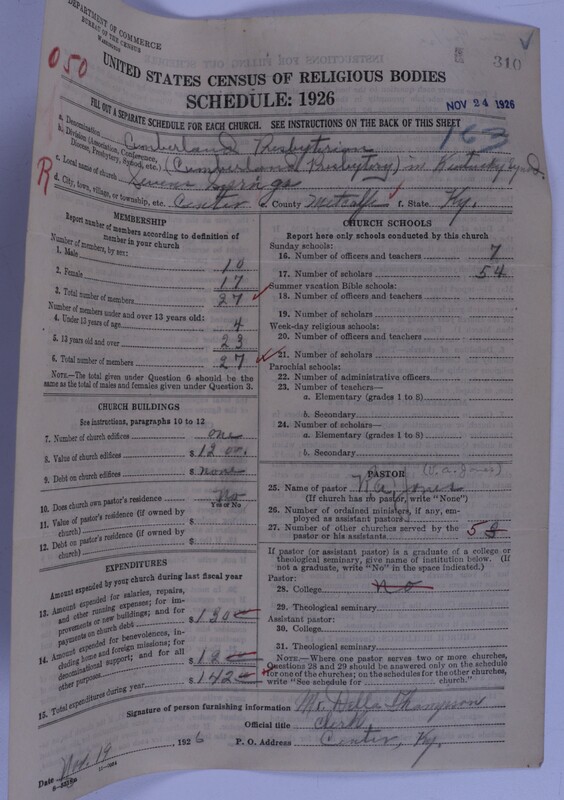 DEPARTMENT OF COMMERCE
BUREAU OF THE CENSUS
Washington
050
310
UNITED STATES CENSUS OF RELIGIOUS BODIES
SCHEDULE: 1926
NOV 24 1926
FILL OUT A SEPARATE SCHEDULE FOR EACH CHURCH. SEE INSTRUCTIONS ON THE BACK OF THIS SHEET
163
a. Denomination Cumberland Presbyterian
b. Division (Association, Conference, Diocese, Presbytery, Synod, etc.) (Cumberland Presbytery) in Kentucky Synod.
R
c. Local name of church Sevens Springs
d. City, town, village, or township, etc. Center e. County Metcalfe f. State Ky.
MEMBERSHIP
Report number of members according to definition of
member in your church
Number of members, by sex:
1. Male 10
2. Female 17
3. Total number of members 27
Number of members under and over 13 years old:
4. Under 13 years of age 4
5. 13 years old and over 23
6. Total number of members 27
NOTE.—The total given under Question 6 should be the
same as the total of males and females given under Question 3.
CHURCH BUILDINGS
See instructions, paragraphs 10 to 12
7. Number of church edifices one
8. Value of church edifices $
9. Debt on church edifices $ none
10. Does church own pastor's residence No
Yes or No
11. Value of pastor's residence (if owned by
church) $
12. Debt on pastor's residence (if owned by
church) $
EXPENDITURES
Amount expended by your church during last fiscal year
13. Amount expended for salaries, repairs,
and other running expenses; for im-
provements or new buildings; and for
payments on church debt $ 130
14. Amount expended for benevolences, in-
cluding home and foreign missions; for
denominational support; and for all
other purposes $ 12
15. Total expenditures during year $ 142
CHURCH SCHOOLS
Report here only schools conducted by this church
Sunday schools:
16. Number of officers and teachers 7
17. Number of scholars 54
Summer vacation Bible schools:
18. Number of officers and teachers
19. Number of scholars
Week-day religious schools:
20. Number of officers and teachers
21. Number of scholars
Parochial schools:
22. Number of administrative officers
23. Number of teachers—
a. Elementary (grades 1 to 8)
b. Secondary
24. Number of scholars—
a. Elementary (grades 1 to 8)
b. Secondary
PASTOR
25. Name of pastor Jones
(If church has no pastor, write "None")
26. Number of ordained ministers, if any, em-
ployed as assistant pastors
27. Number of other churches served by the
pastor or his assistants 5
If pastor (or assistant pastor) is a graduate of a college or
theological seminary, give name of institution below. (If
not a graduate, write "No" in the space indicated.)
Pastor:
28. College No
29. Theological seminary
Assistant pastor:
30. College
31. Theological seminary
NOTE.—Where one pastor serves two or more churches,
Questions 28 and 29 should be answered only on the schedule
for one of the churches; on the schedules for the other churches,
write "See schedule for church."
Signature of person furnishing information Della Thompson
Official title Clerk
Date Nov. 19, 1926 P. O. Address Center, Ky.